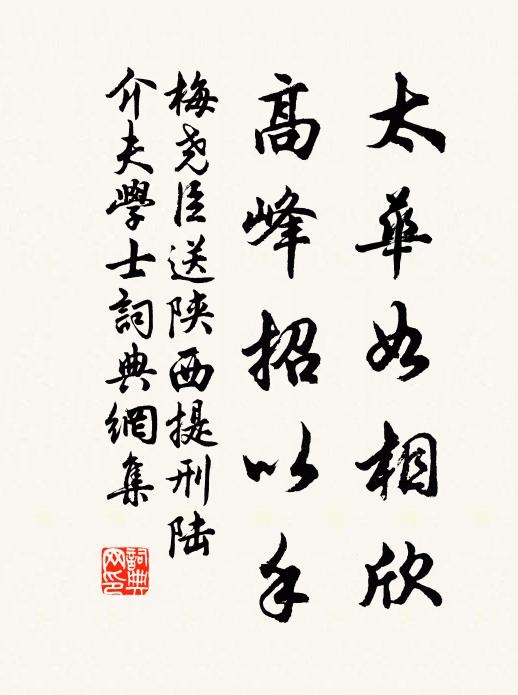 太華如相欣
高峰招以手
梅堯臣送陝西提刑陸
介夫學士詞典網集
詞典网印